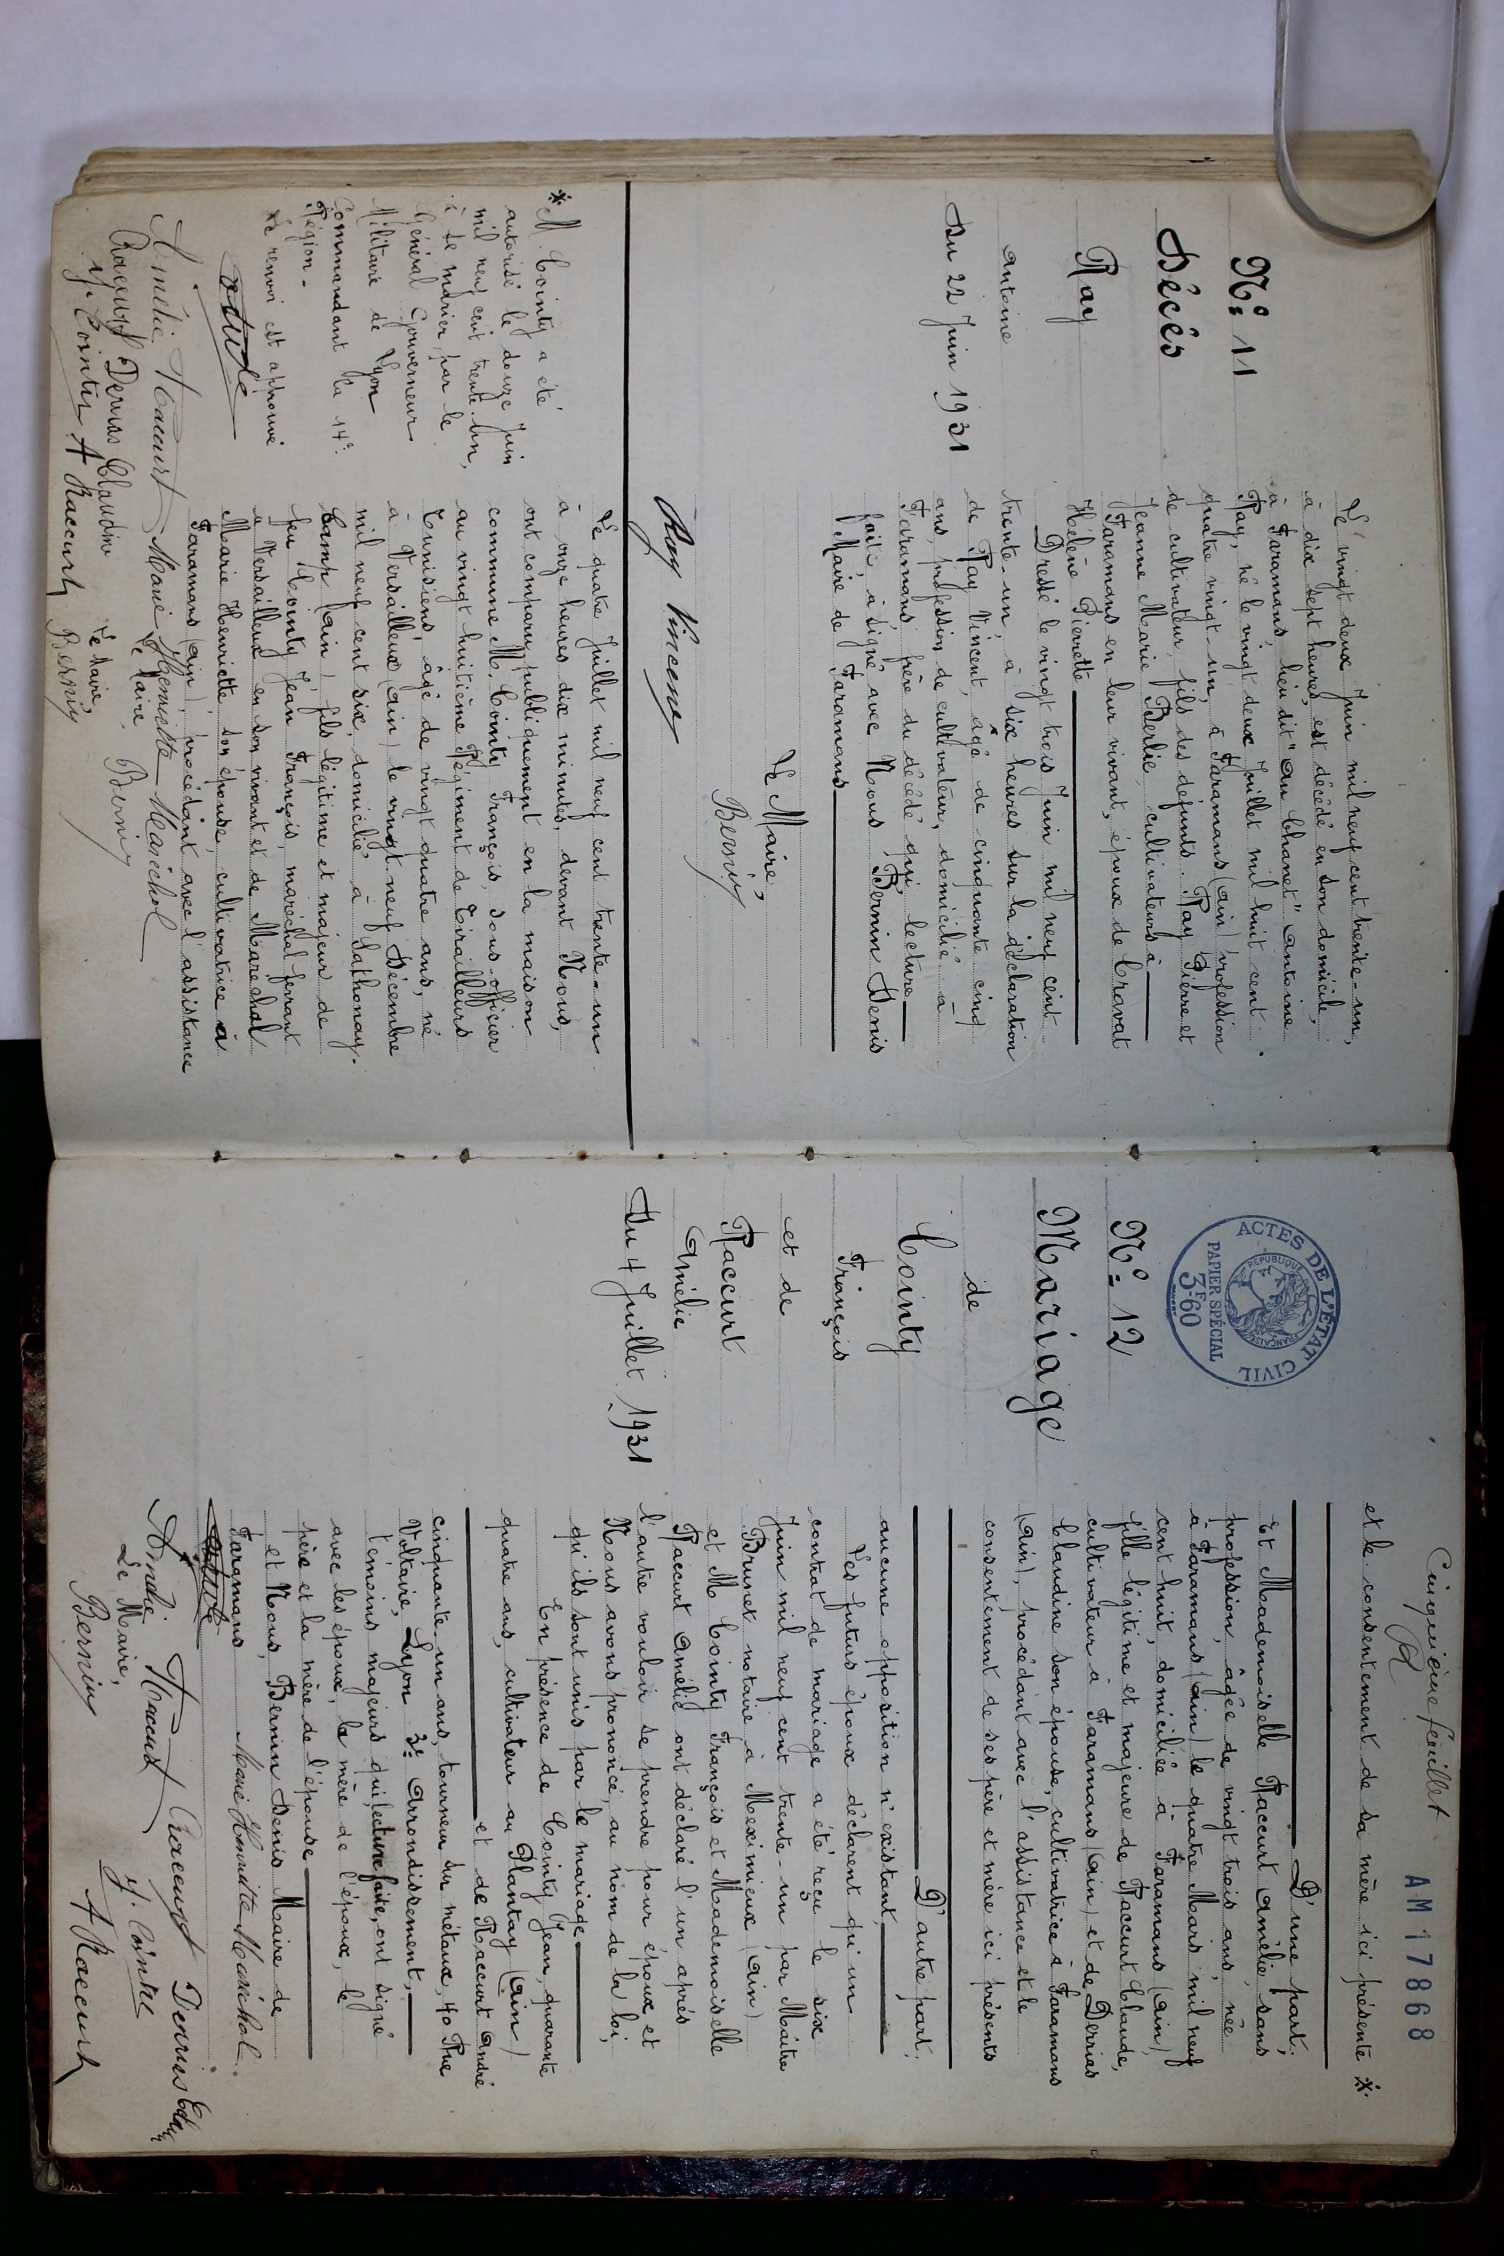 N° 11
Décès
Ray
Antoine
Du 22 Juin 1931
Le vingt deux Juin mil neuf cent trente-un,
à dix sept heures, est décédé en son domicile,
à Faramans, lieu dit "au Chanet" Antoine
Ray, né le vingt deux Juillet mil huit cent
quatre vingt un, à Faramans (Ain) profession
de cultivateur, fils des défunts Ray Pierre et
Jeanne Marie Berlie, cultivateurs à
Faramans en leur vivant, époux de Cravat
Hélène Pierrette
Dressé le vingt trois Juin mil neuf cent
trente-un, à six heures sur la déclaration
de Ray Vincent, âgé de cinquante cinq
ans, profession de cultivateur, domicilié à
Faramans, frère du décédé qui, lecture
faite, a signé avec Nous Bernin Denis
Maire de Faramans
Le Maire,
Bernin
Ray Vincent
* M. Cointy a été
autorisé le douze Juin
mil neuf cent trente-un,
à se marier, par le
Général Gouverneur
Militaire de Lyon
Commandant la 14e
Région-
Le renvoi est approuvé
Le quatre Juillet mil neuf cent trente-un
à onze heures dix minutes, devant Nous,
ont comparu publiquement en la maison
commune M. Cointy François, sous-officier
au vingt huitième Régiment de Tirailleurs
Tunisiens, âgé de vingt quatre ans, né
à Versailleux (Ain) le vingt neuf Décembre
mil neuf cent six, domicilié à Sathonay-
Camp (Ain) fils légitime et majeur de
feu Cointy Jean François, maréchal ferrant
à Versailleux en son vivant et de Maréchal
Marie Henriette son épouse, cultivatrice à
Faramans (Ain), procédant avec l'assistance
Amélie Raccurt Marie Henriette Maréchal
Le Maire Bernin
Raccurt Derrias Claudine Le Maire,
F. Cointy A Raccurt Bernin
Cinquième feuillet
AM 17868
ACTES DE L'ÉTAT CIVIL
RÉPUBLIQUE FRANÇAISE
PAPIER SPÉCIAL
3F60
N° 12
Mariage
de
Cointy
François
et de
Raccurt
Amélie
Du 4 Juillet 1931
et le consentement de sa mère ici présente *
D'une part;
Et Mademoiselle Raccurt Amélie, sans
profession, âgée de vingt trois ans, née
à Faramans (Ain) le quatre Mars mil neuf
cent huit, domiciliée à Faramans (Ain)
fille légitime et majeure de Raccurt Claude,
cultivateur à Faramans (Ain) et de Derrias
Claudine son épouse, cultivatrice à Faramans
(Ain), procédant avec l'assistance et le
consentement de ses père et mère ici présents
D'autre part,
aucune opposition n'existant,
Les futurs époux déclarent qu'un
contrat de mariage a été reçu le six
Juin mil neuf cent trente-un par Maître
Brunet notaire à Meximieux (Ain)
et M Cointy François et Mademoiselle
Raccurt Amélie ont déclaré l'un après
l'autre vouloir se prendre pour époux, et
Nous avons prononcé, au nom de la loi,
qu'ils sont unis par le mariage
En présence de Cointy Jean, quarante
quatre ans, cultivateur au Plantay (Ain)
et de Raccurt André
cinquante un ans, tourneur sur métaux, 40 Rue
Voltaire, Lyon 3e Arrondissement,
témoins majeurs qui, lecture faite, ont signé
avec les époux, la mère de l'époux, le
père et la mère de l'épouse
et Nous, Bernin Denis Maire de
Faramans Marie Henriette Maréchal
Amélie Raccurt Raccurt Derrias
Le Maire,
Bernin
A Raccurt